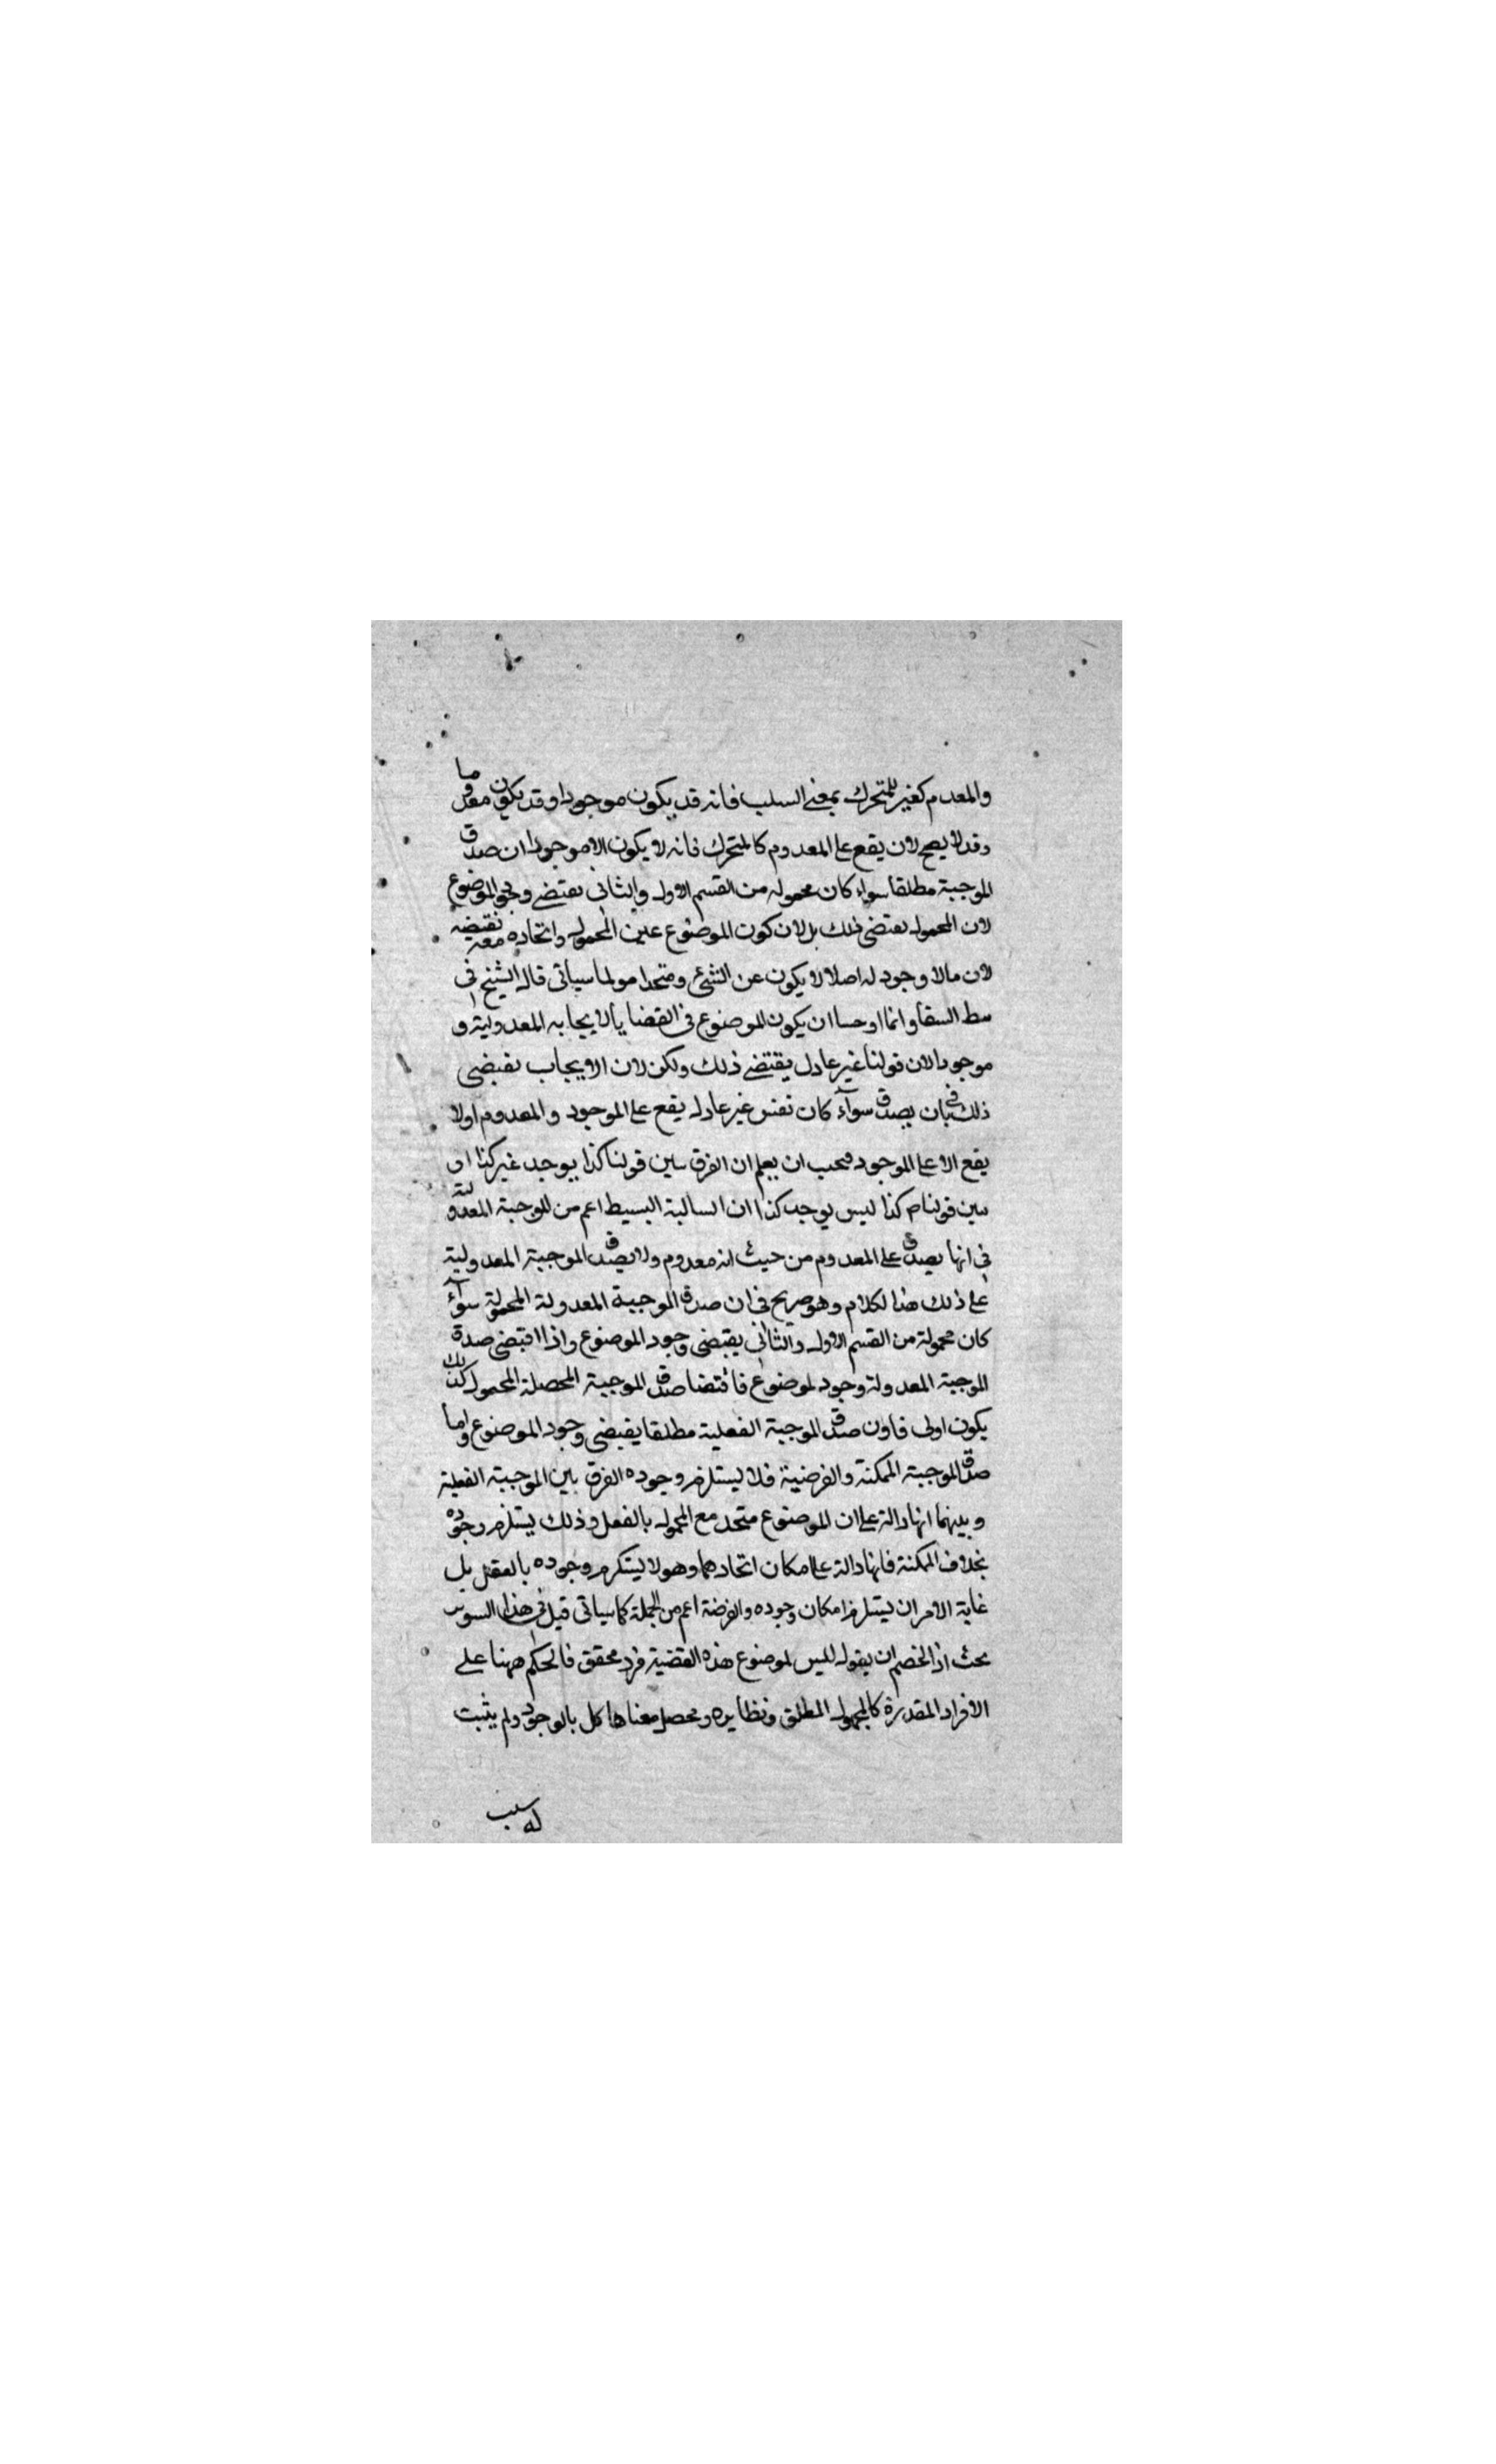 والمعدم كغير المتحرك بمعنى السلب فانه قد يكون موجودا وقد يكون معدوما
وقد لا يصح لان يقع على المعدوم كالمتحرك فانه لا يكون الا موجودا ان صدق
الموجبة مطلقا سواء كان محموله من القسم الاول والثاني يقتضي وجود الموضوع
لان المحمول يقتضي ذلك بل لان كون الموضوع عين المحمول واتحاده معه يقتضيه
لان ما لا وجود له اصلا لا يكون عن الشئ ومتحدا مولما سياتي قال الشيخ في
سط السفا وانما اوحسا ان يكون الموضوع في القضايا الايجابه المعدولية و
موجودا لان قولنا غير عادل يقتضي ذلك ولكن لان الايجاب يقتضي
ذلك في بان يصدق سوآء كان نفس غير عادل يقع على الموجود والمعدوم اولا
يقع الا على الموجود فيجب ان يعلم ان الفرق بين قولنا كذا يوجد غير كذا او
بين قولنا م كذا ليس يوجد كذا ان السالبة البسيط اعم من الموجبة المعدولية
في انها يصدق على المعدوم من حيث انه معدوم ولا يصدق الموجبة المعدولية
على ذلك هذا لكلام وهو صريح في ان صدق الموجبة المعدولة المحمولة سوآء
كان محمولة من القسم الاول والثاني يقتضي وجود الموضوع واذا اقتضى صدق
الموجبة المعدولة وجود لموضوع فاقتضا صدق الموجبة المحصلة المحمول كذلك
يكون اولى فاون صدق الموجبة الفعلية مطلقا يقتضي وجود الموضوع واما
صدق الموجبة الممكنة والفرضية فلا يستلزم وجوده الفرق بين الموجبة الفعلية
وبينهما انها دالة على ان الموضوع متحد مع المحمول بالفعل وذلك يستلزم وجوده
بخلاف الممكنة فانها دالة على امكان اتحادهما وهو لا يستلزم وجوده بالفعل بل
غاية الامر ان يستلزم امكان وجوده والفرضة اعم من الجملة كما سياتي قيل في هذا السوس
بحث اذ الخصم ان يقول ليس لموضوع هذه القضية فرد محقق فالحكم ههنا على
الافراد المقدرة كالمجهول المطلق ونظايره ومحصل معناها كل بالوجود ولم يثبت
له سلب